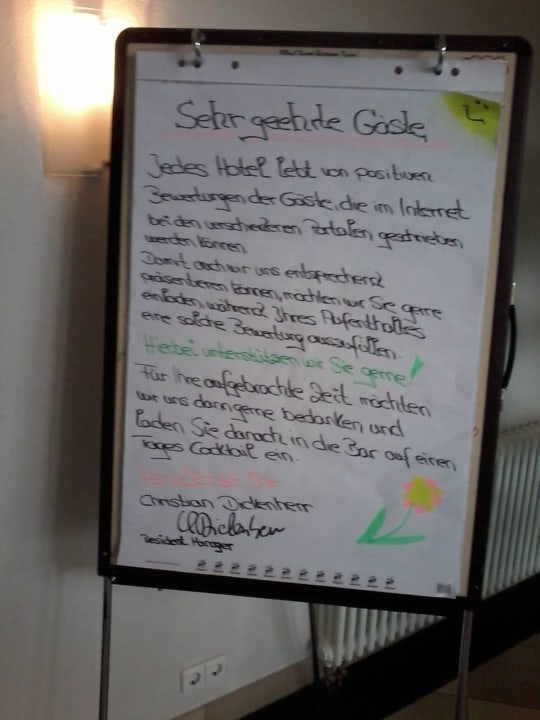 Sehr geehrte Gäste
Jedes Hotel lebt von positiven
Bewertungen der Gäste, die im Internet
bei den verschiedenen Portalen geschrieben
werden können.
Damit auch wir uns entsprechend
präsentieren können, möchten wir Sie gerne
einladen, während Ihres Aufenthaltes
eine solche Bewertung auszufüllen.
Hierbei unterstützen wir Sie gerne!
Für Ihre aufgebrachte Zeit möchten
wir uns dann gerne bedanken und
laden Sie danach in die Bar auf einen
Tages Cocktail ein.
Herzlichst Ihr
Christian Dickenherr
Resident Manager